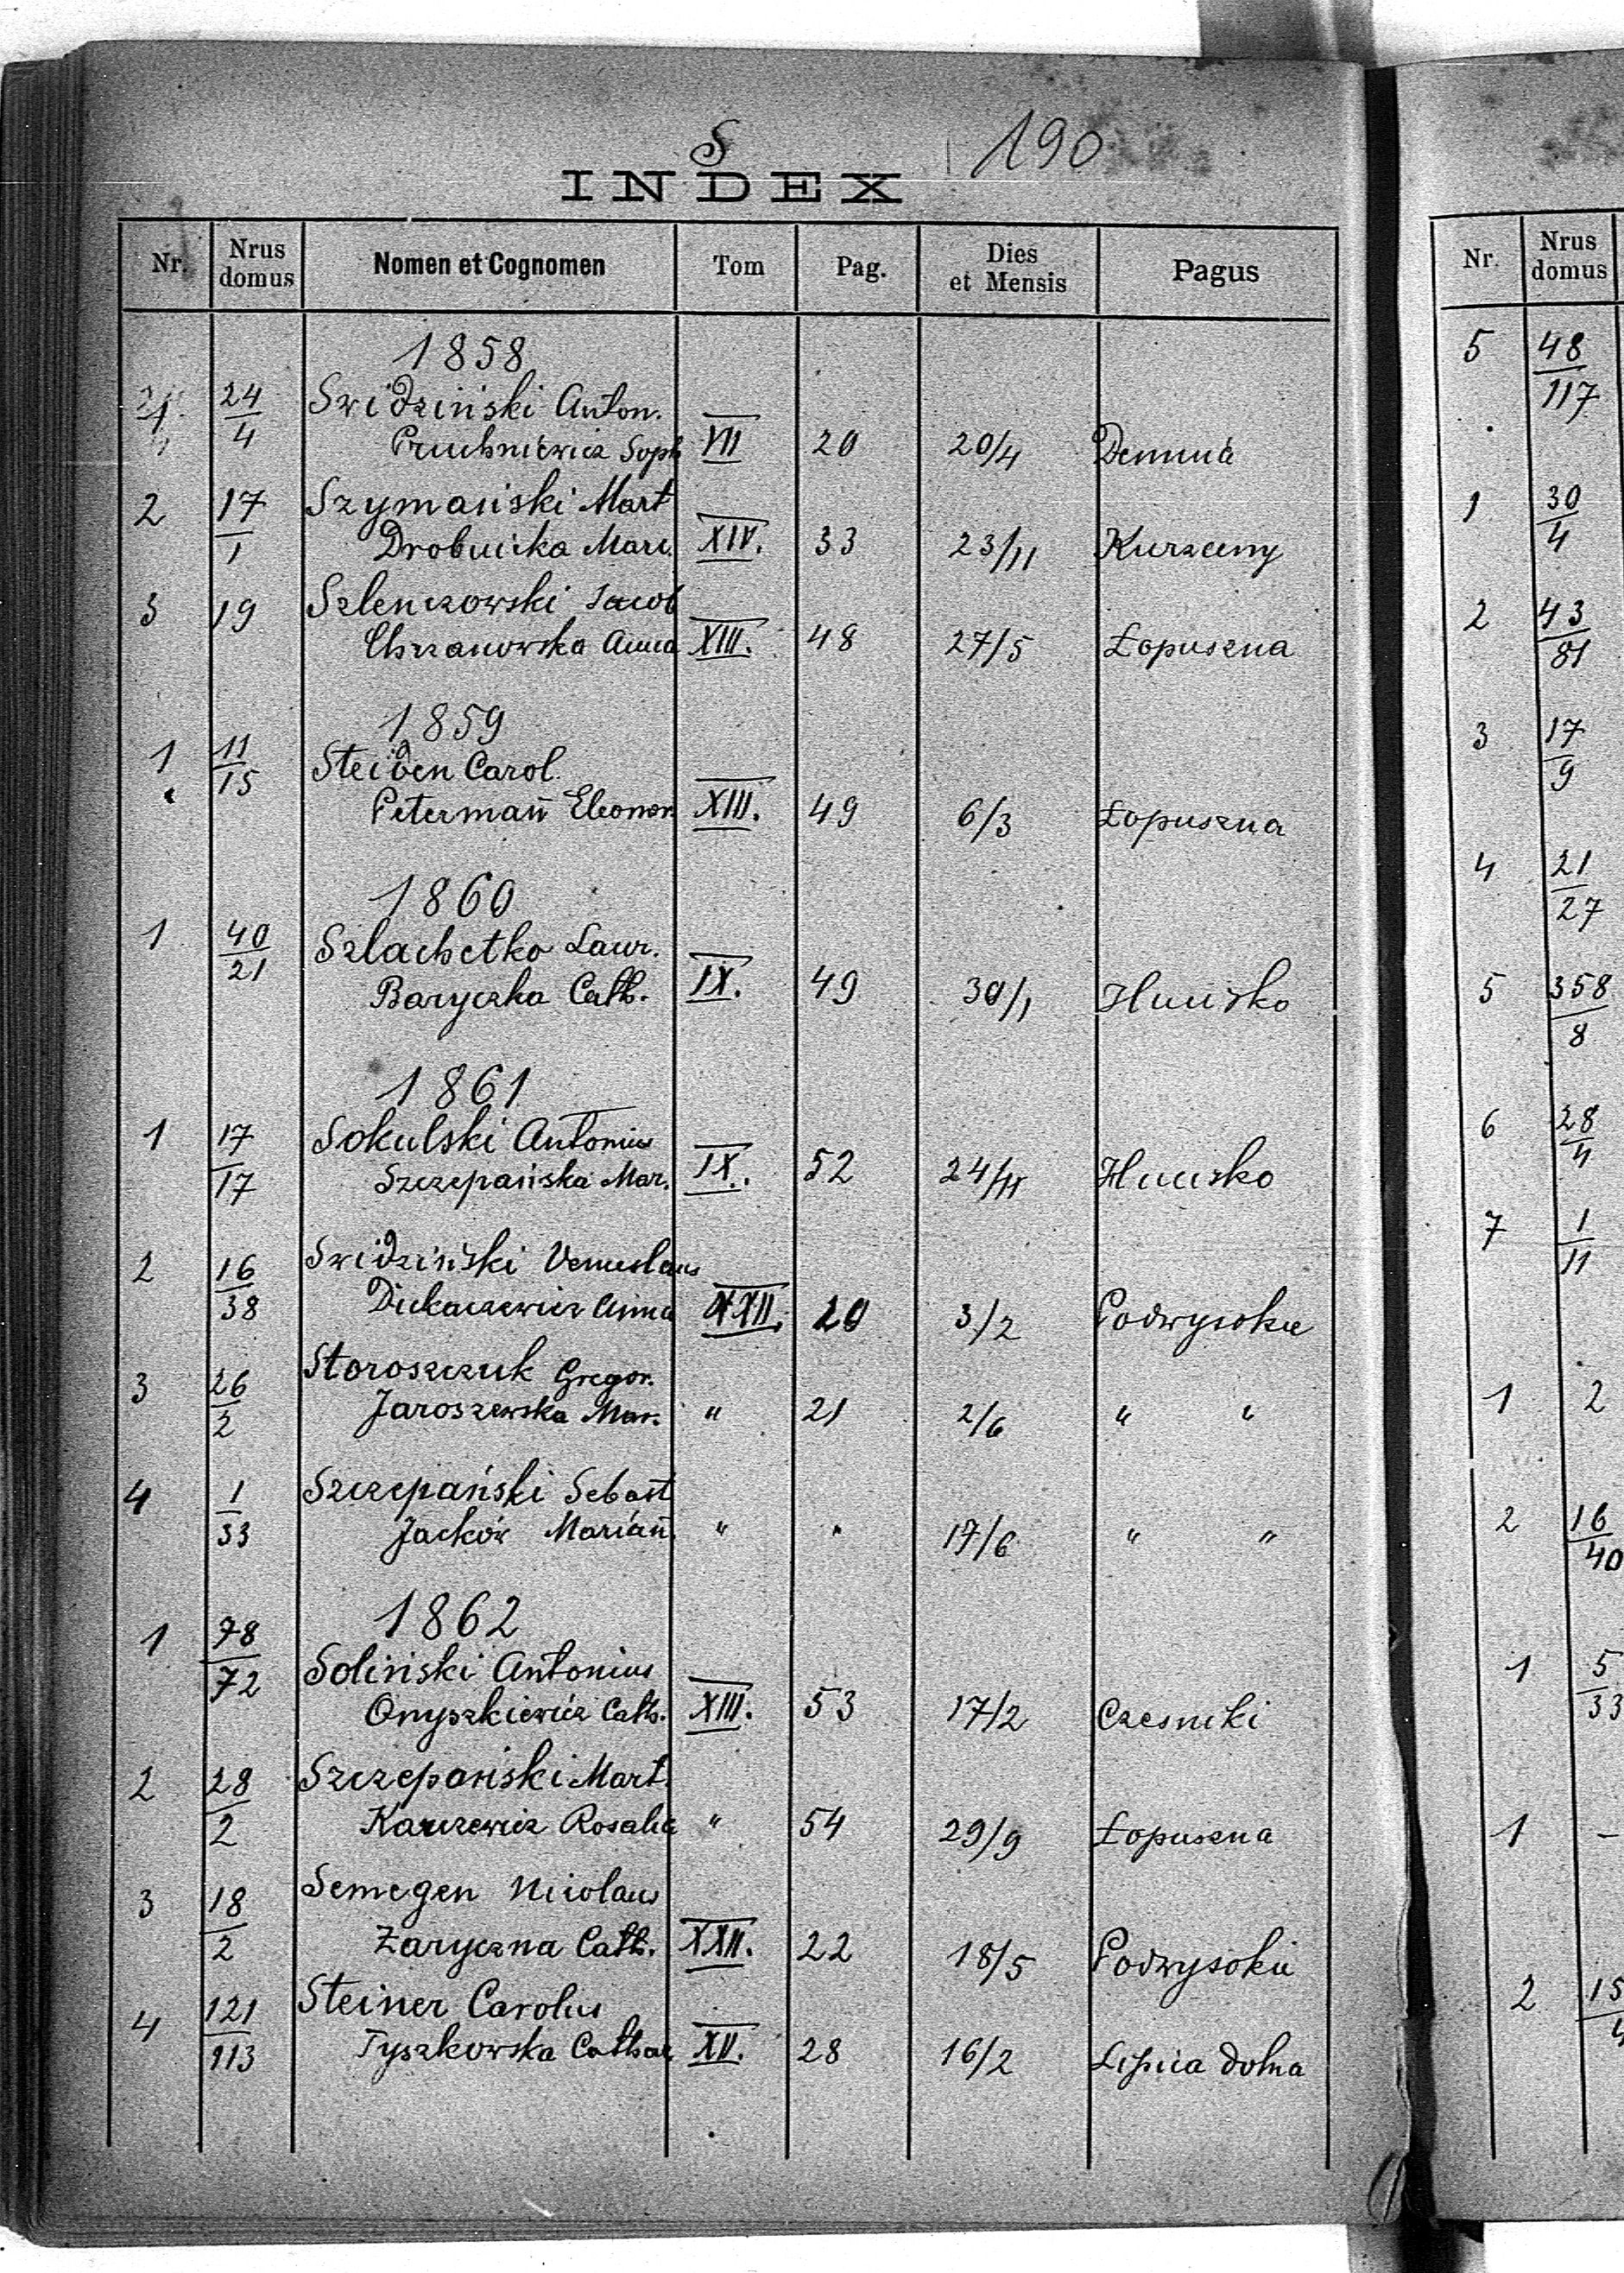 S
190
INDEX
Nr. Nrus domus Nomen et Cognomen Tom Pag. Dies et Mensis Pagus
1858
1 24/4 Swidziński Anton.
Pruchniewicz Soph VII 20 20/4 Demnia
2 17/1 Szymański Mart
Drobnicka Mari. XIV. 33 23/11 Kurzany
3 19 Szlenczowski Jacob
Chrzanowska Anna XIII. 48 27/5 Łopuszna
1859
1 11/15 Steiden Carol.
Petermañ Eleonor. XIII. 49 6/3 Łopuszna
1860
1 40/21 Szlachetko Laur.
Baryczka Cath. IX. 49 30/1 Hucisko
1861
1 17/17 Sokulski Antonius
Szczepańska Mar. IX. 52 24/11 Hucisko
2 16/38 Swidziński Venceslaus
Anna XXII. 20 3/2 Podwysokie
3 26/2 Storoszczuk Gregor.
Jaroszewska Mar. " 21 2/6 " "
4 1/33 Szczepański Sebast
Jacków Mariañ. " " 17/6 " "
1862
1 78/72 Soliński Antonius
Onyszkiewicz Cath. XIII. 53 17/2 Czesniki
2 28/2 Szczepański Mart.
Karczewicz Rosalia " 54 29/9 Łopuszna
3 18/2 Semegen Nicolaus
Zaryczna Cath. XXII. 22 18/5 Podwysokie
4 121/113 Steiner Carolus
Tyszkowska Cathar XV. 28 16/2 Lipica dolna
Nr. Nrus domus
5 48/117
1 30/4
2 43/81
3 17/9
4 21/27
5 358/8
6 28/4
7 1/11
1 2
2 16/40
1 5/33
1 –
2 15